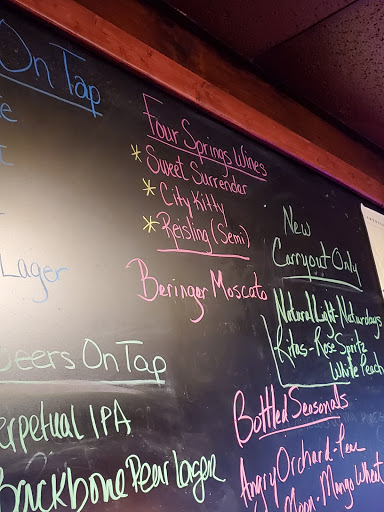 On Tap
Lager
Four Springs Wines
* Sweet Surrendar
* City Kitty
* Reisling (Semi)
Beringer Moscato
New
Carryout Only
Natural Light-Naturdays
Ritas-Rose Spritz
White Peach
Beers On Tap
Perpetual IPA
Backbone Pear Lager
Bottled Seasonals
Angry Orchard-Pear
Mango Wheat